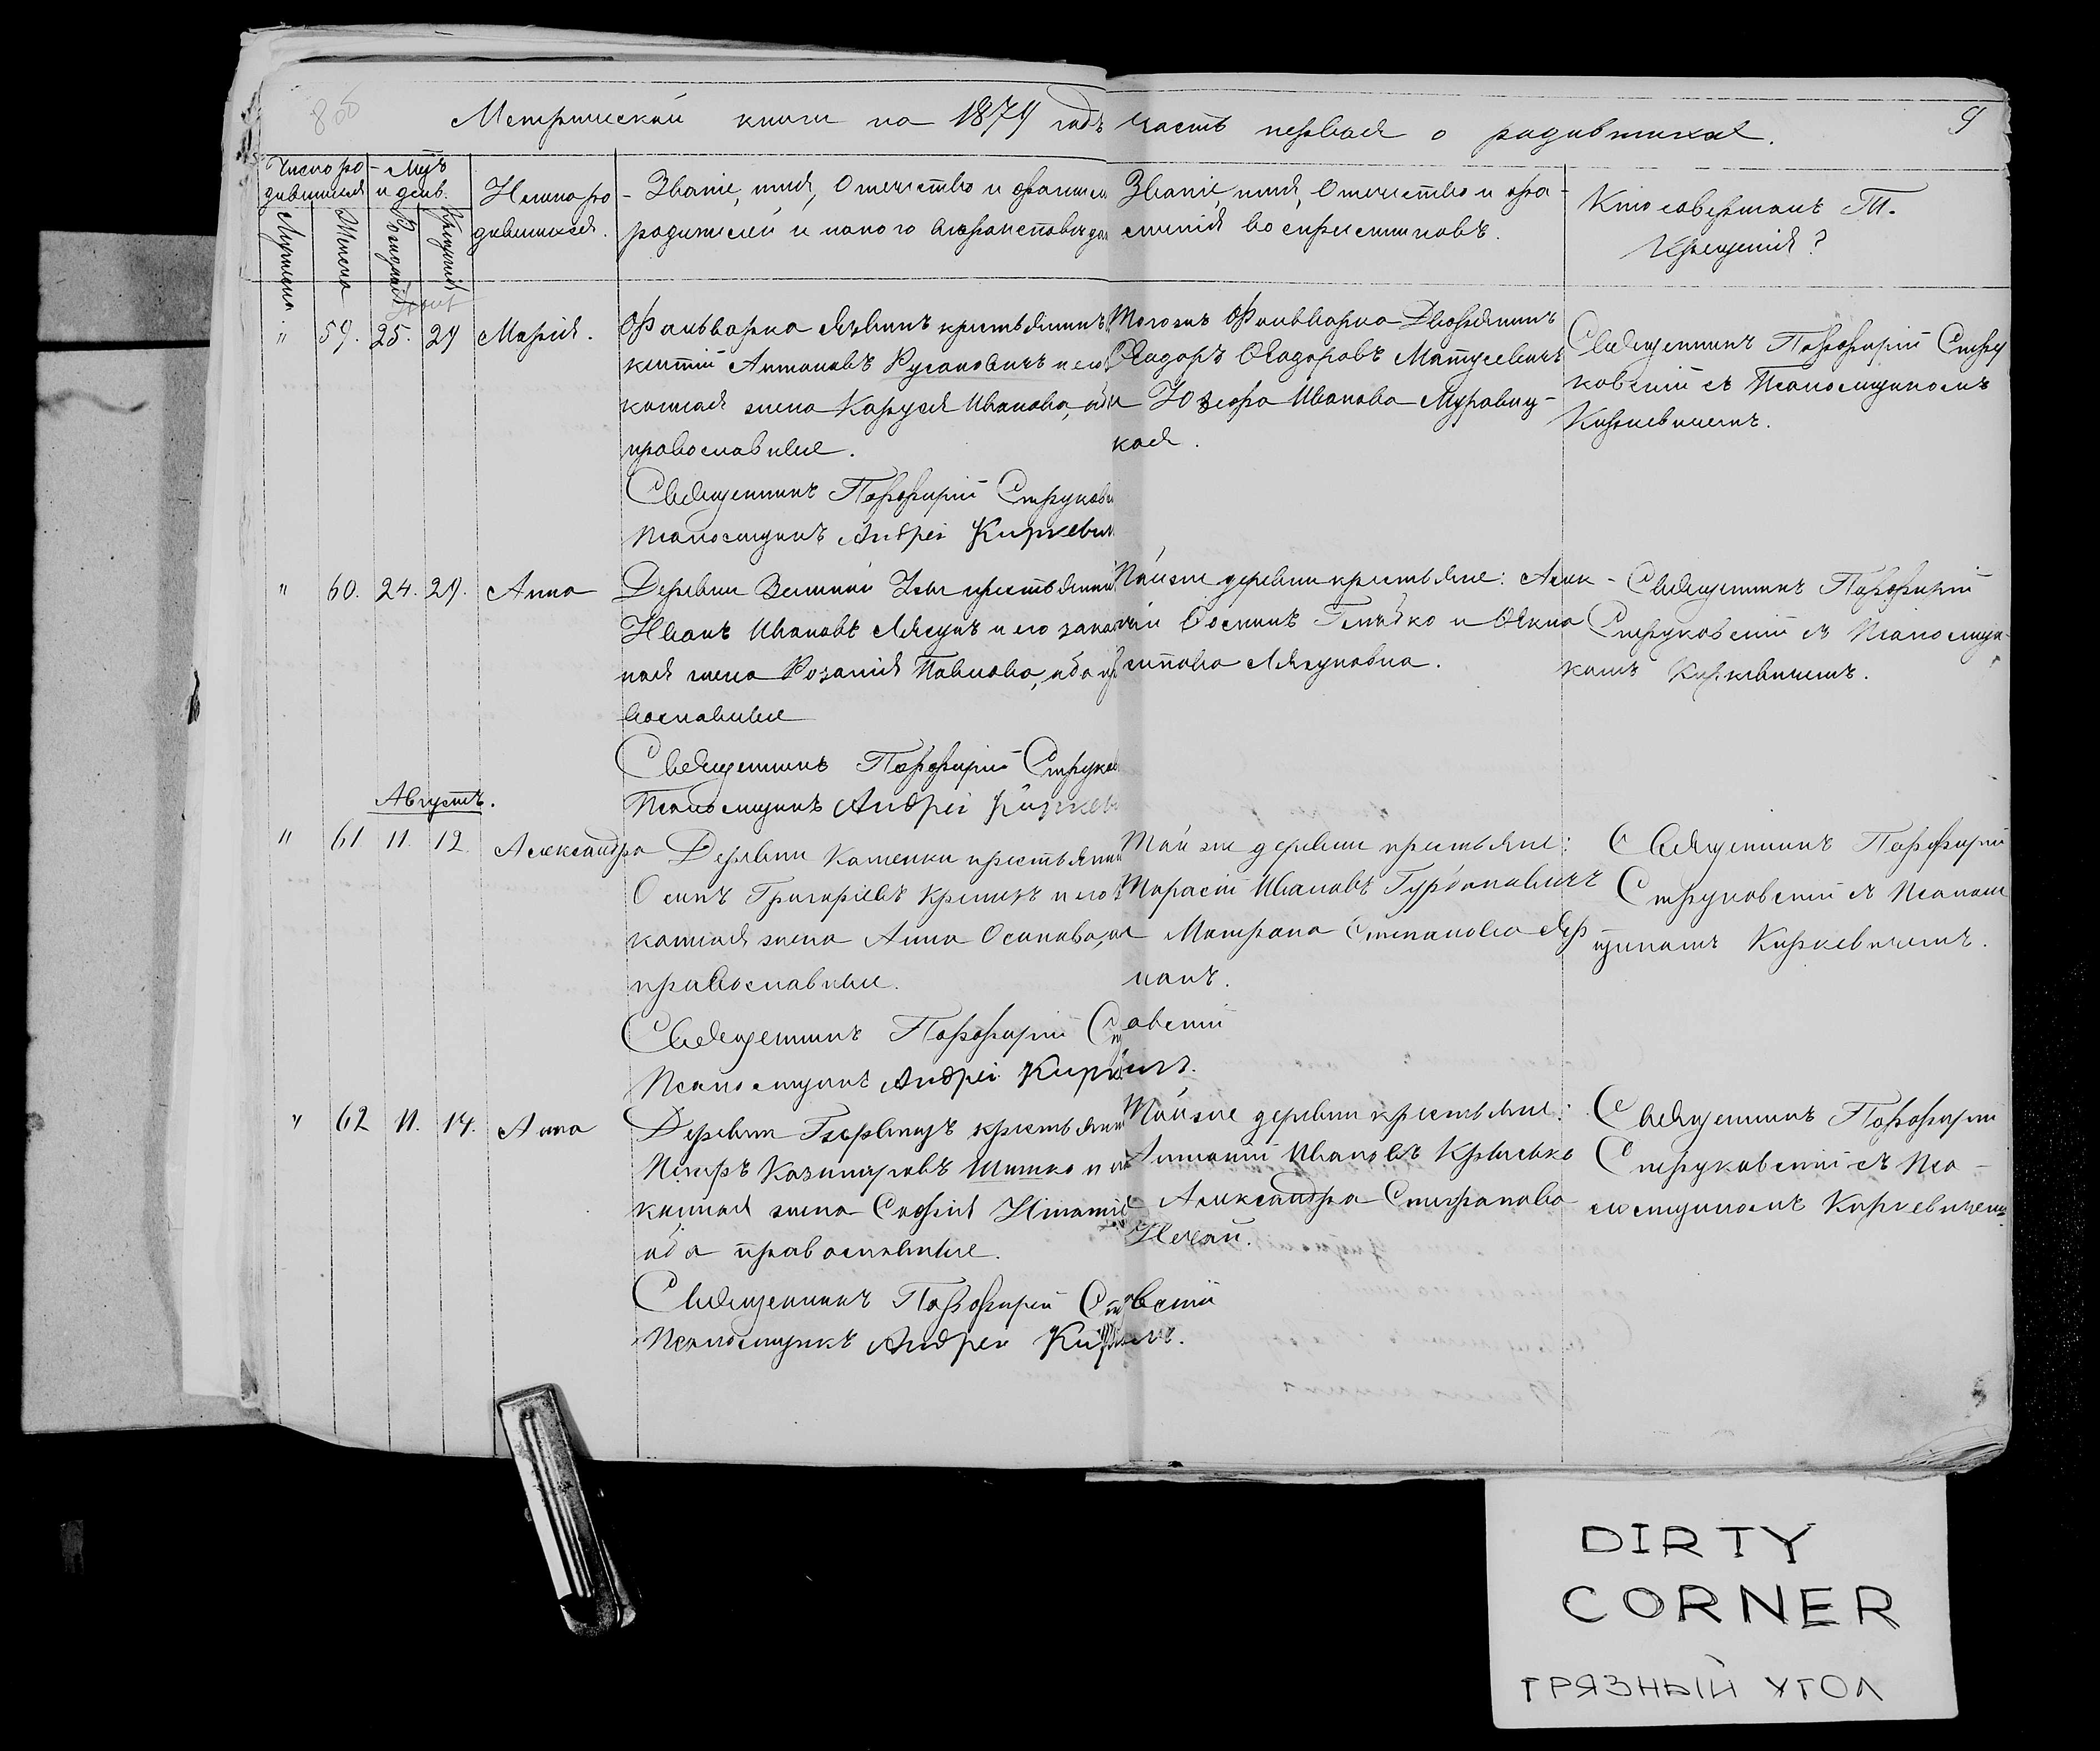 Метрической книги на 1879 годъ часть первая о родившихся.
9
Число родившихся
Мѣс. и день
Имена родившихся.
Званіе, имя, отечество и фамилія родителей и какого вѣроисповѣда
Званіе, имя, отечество и фамилія воспріемниковъ.
Кто совершалъ т. крещенія?
Мужеска
Женска
Рожденія
Крещенія
" 59. 25. 29 Марія.
Фальварка крестьянинъ
Антоновъ Русановичъ и его
конная жена Ивановна, оба
православные.
Священникъ Порфирій Струков
Псаломщикъ Андрей Киркевич
Тогожъ Фальварка Дворянинъ
Ѳадоръ Ѳадоровъ Матусевичъ
и Юзефа Иванова Муравиц-
кая.
Священникъ Порфирій Стру
ковскій съ Псаломщикомъ
Киркевичемъ.
" 60. 24. 29. Анна
Деревни крестьянинъ
Иванъ Ивановъ Лягунъ и его зако
ная жена Розалія Павлова, оба пра
вославные
Священникъ Порфирій Струков
Псаломщикъ Андрей Киркев
Той же деревни крестьяне:
Осиповъ и
Лягуновна.
Священникъ Порфирій
Струковскій съ Псаломщи-
комъ Киркевичемъ.
Августъ.
" 61 11. 12. Александра
Деревни Каменки крестьянин
Осипъ Григорьевъ и его
конная жена Анна Осипова, о
православные.
Священникъ Порфирій Ст овскій
Псаломщикъ Андрей Кирк ичъ.
Той же деревни крестьяне:
Тарасій Ивановъ Гурбановичъ
Матрона Степанова Яр
Священникъ Порфирій
Струковскій съ Псалом
щикомъ Киркевичемъ.
" 62 11. 14. Анна
Деревни крестьянин
Петръ Казиміровъ Шишко и
конная жена Софія Игнатіе
оба православные.
Священникъ Порфирій Ст овскій
Псаломщикъ Андрей Кирк ичъ.
Той же деревни крестьяне:
Антоній Ивановъ
Александра Стефанова
Нехай.
Священникъ Порфирій
Струковскій съ Пса-
ломщикомъ Киркевичемъ
DIRTY
CORNER
ГРЯЗНЫЙ УГОЛ